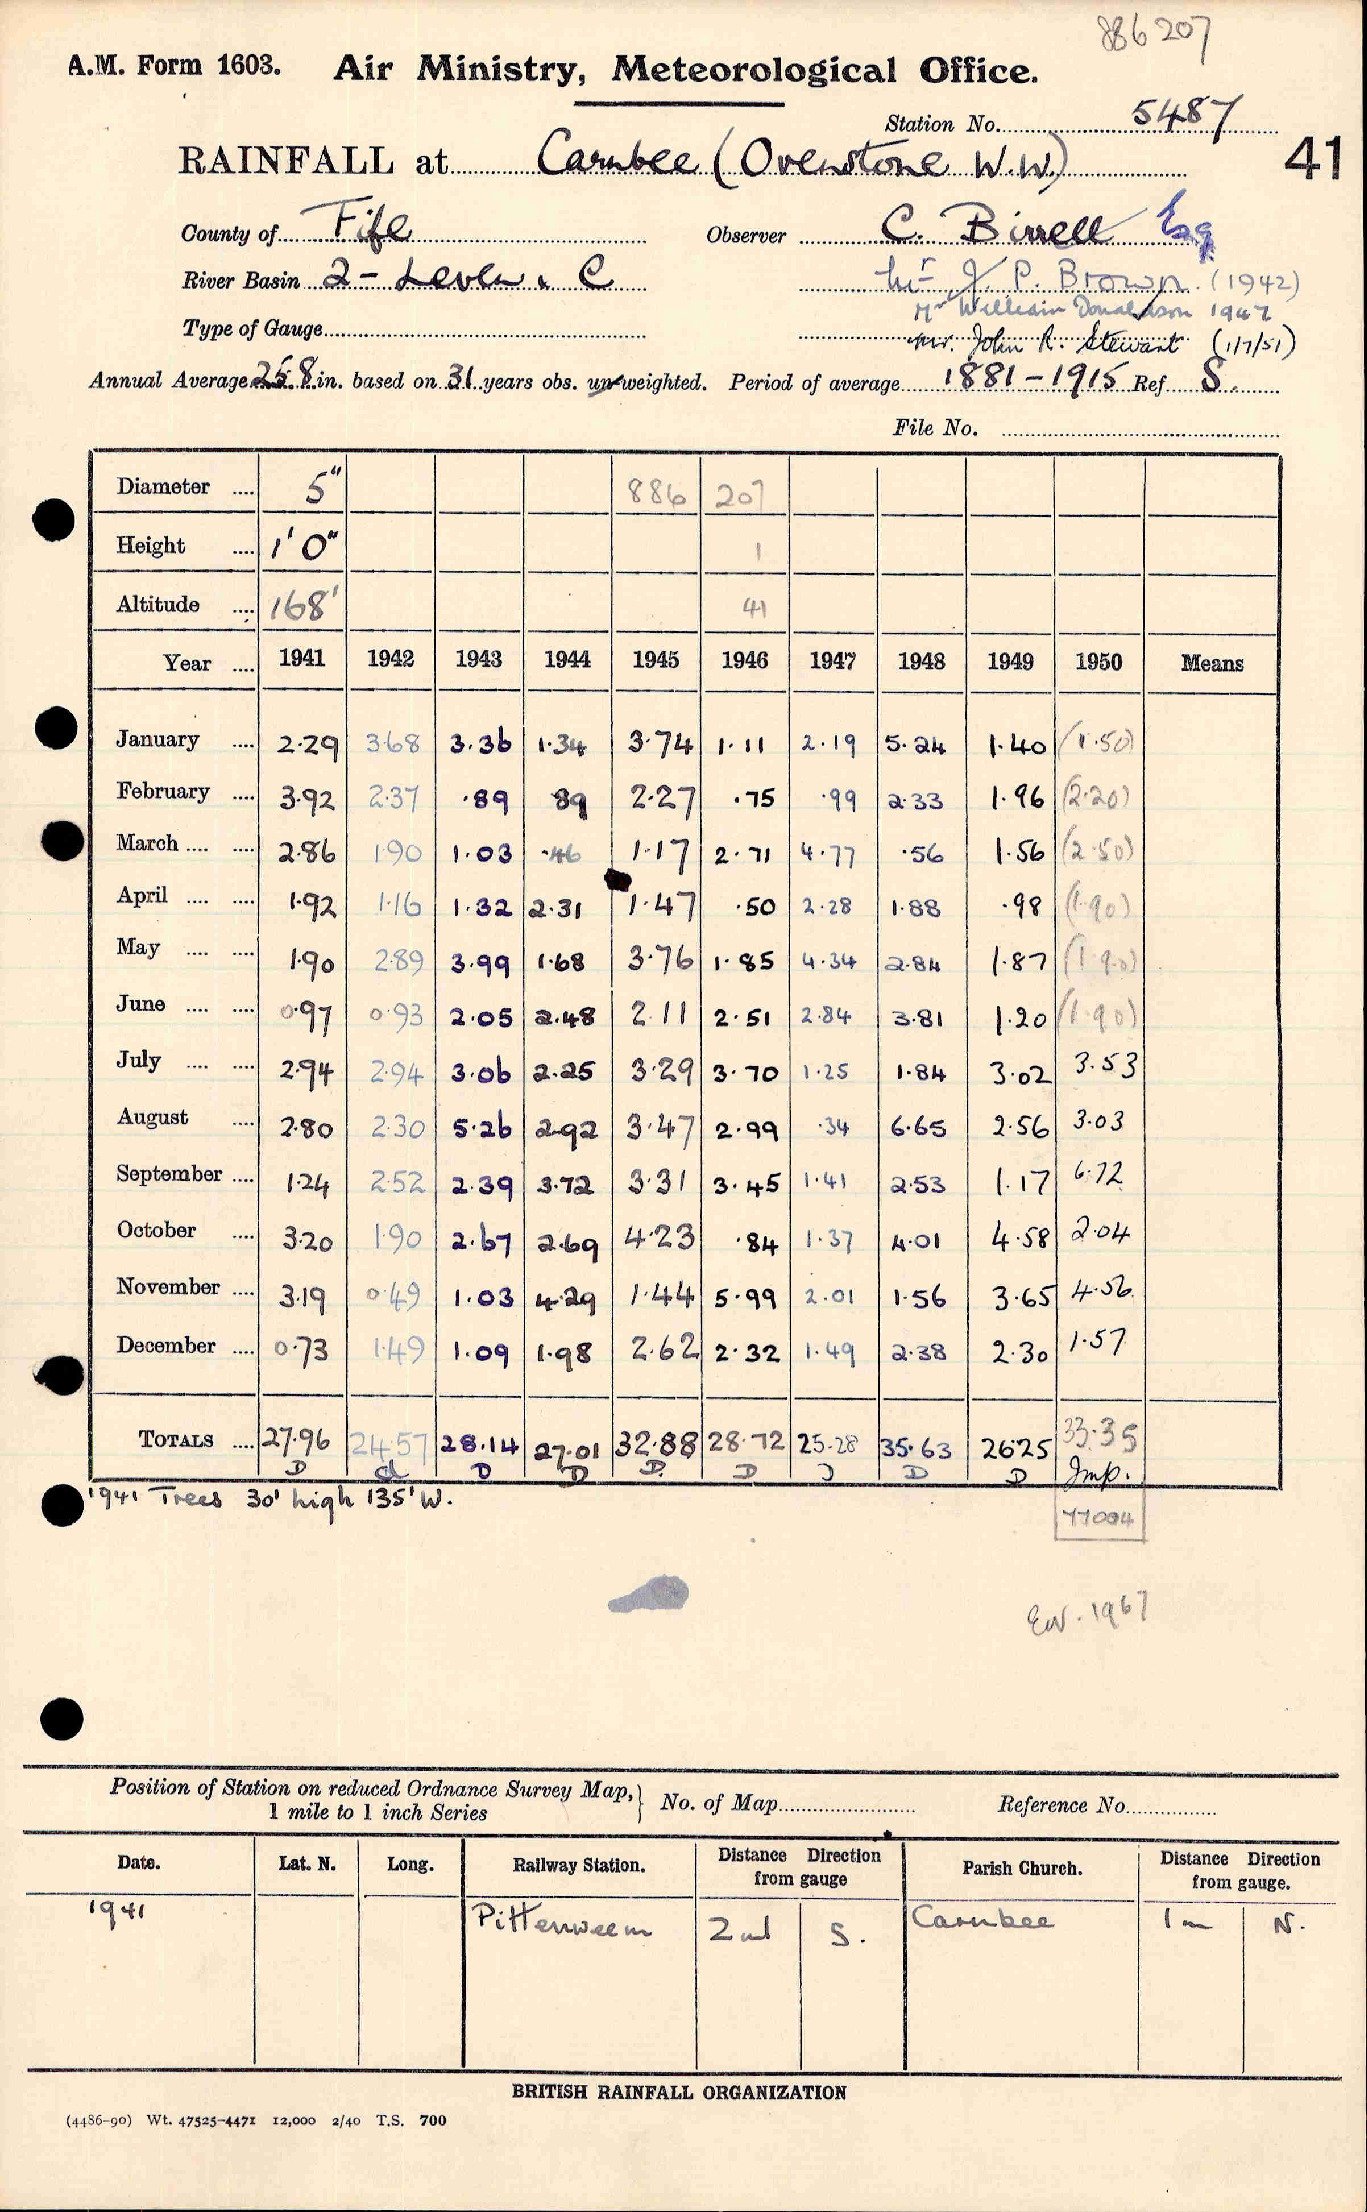 886207
A.M. Form 1603. Air Ministry, Meteorological Office.
Station No. 5487
41
RAINFALL at Carnbee (Ovenstone W.W.)
County of Fife Observer C. Birrell Esq
River Basin 2 - Leven & C Mr J. P. Brown. (1942)
Mr William Donaldson 1947
Type of Gauge
Mr. John R. Stewart (1/7/51)
Annual Average 25.8 in. based on 31 years obs. un-weighted. Period of average 1881-1915 Ref S.
File No.
Diameter .... 5" 886 207
Height .... 1' 0" 1
Altitude .... 168' 41
Year .... 1941 1942 1943 1944 1945 1946 1947 1948 1949 1950 Means
January .... 2.29 3.68 3.36 1.34 3.74 1.11 2.19 5.24 1.40 (1.50)
February .... 3.92 2.37 .89 .89 2.27 .75 .99 2.33 1.96 (2.20)
March .... .... 2.86 1.90 1.03 .46 1.17 2.71 4.77 .56 1.56 (2.50)
April .... .... 1.92 1.16 1.32 2.31 1.47 .50 2.28 1.88 .98 (1.90)
May .... .... 1.90 2.89 3.99 1.68 3.76 1.85 4.34 2.84 1.87 (1.90)
June .... .... 0.97 0.93 2.05 2.48 2.11 2.51 2.84 3.81 1.20 (1.90)
July .... .... 2.94 2.94 3.06 2.25 3.29 3.70 1.25 1.84 3.02 3.53
August .... 2.80 2.30 5.26 2.92 3.47 2.99 .34 6.65 2.56 3.03
September .... 1.24 2.52 2.39 3.72 3.31 3.45 1.41 2.53 1.17 6.72
October .... 3.20 1.90 2.67 2.69 4.23 .84 1.37 4.01 4.58 2.04
November .... 3.19 0.49 1.03 4.29 1.44 5.99 2.01 1.56 3.65 4.56
December .... 0.73 1.49 1.09 1.98 2.62 2.32 1.49 2.38 2.30 1.57
TOTALS .... 27.96 24.57 28.14 27.01 32.88 28.72 25.28 35.63 26.25 33.35
D d D D D D D D D Imp.
1941 Trees 30' high 135' W.
77004
Ew. 1967
Position of Station on reduced Ordnance Survey Map,
1 mile to 1 inch Series
No. of Map Reference No.
Date. Lat. N. Long. Railway Station. Distance Direction from gauge Parish Church. Distance Direction from gauge.
1941 Pittenweem 2 ml S. Carnbee 1 m N.
BRITISH RAINFALL ORGANIZATION
(4486-90) Wt. 47525-4471 12,000 2/40 T.S. 700